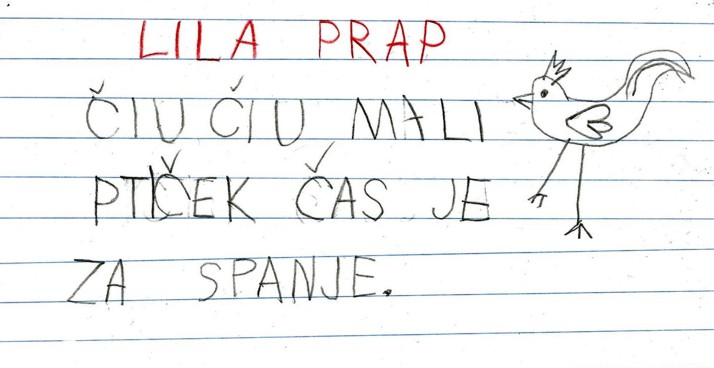 LILA PRAP
ČIU ČIU MALI
PTIČEK ČAS JE
ZA SPANJE.